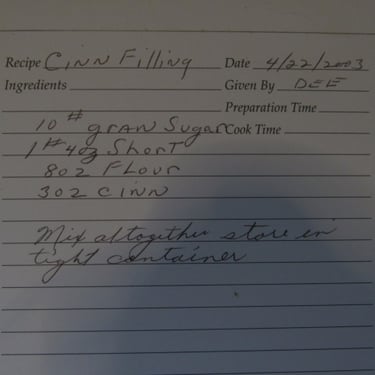 Recipe Cinn Filling Date 4/22/2003
Ingredients Given By DEE
Preparation Time
10# gran Sugar Cook Time
1# 4oz Short
8oz Flour
3oz Cinn
Mix altogether store in
tight container